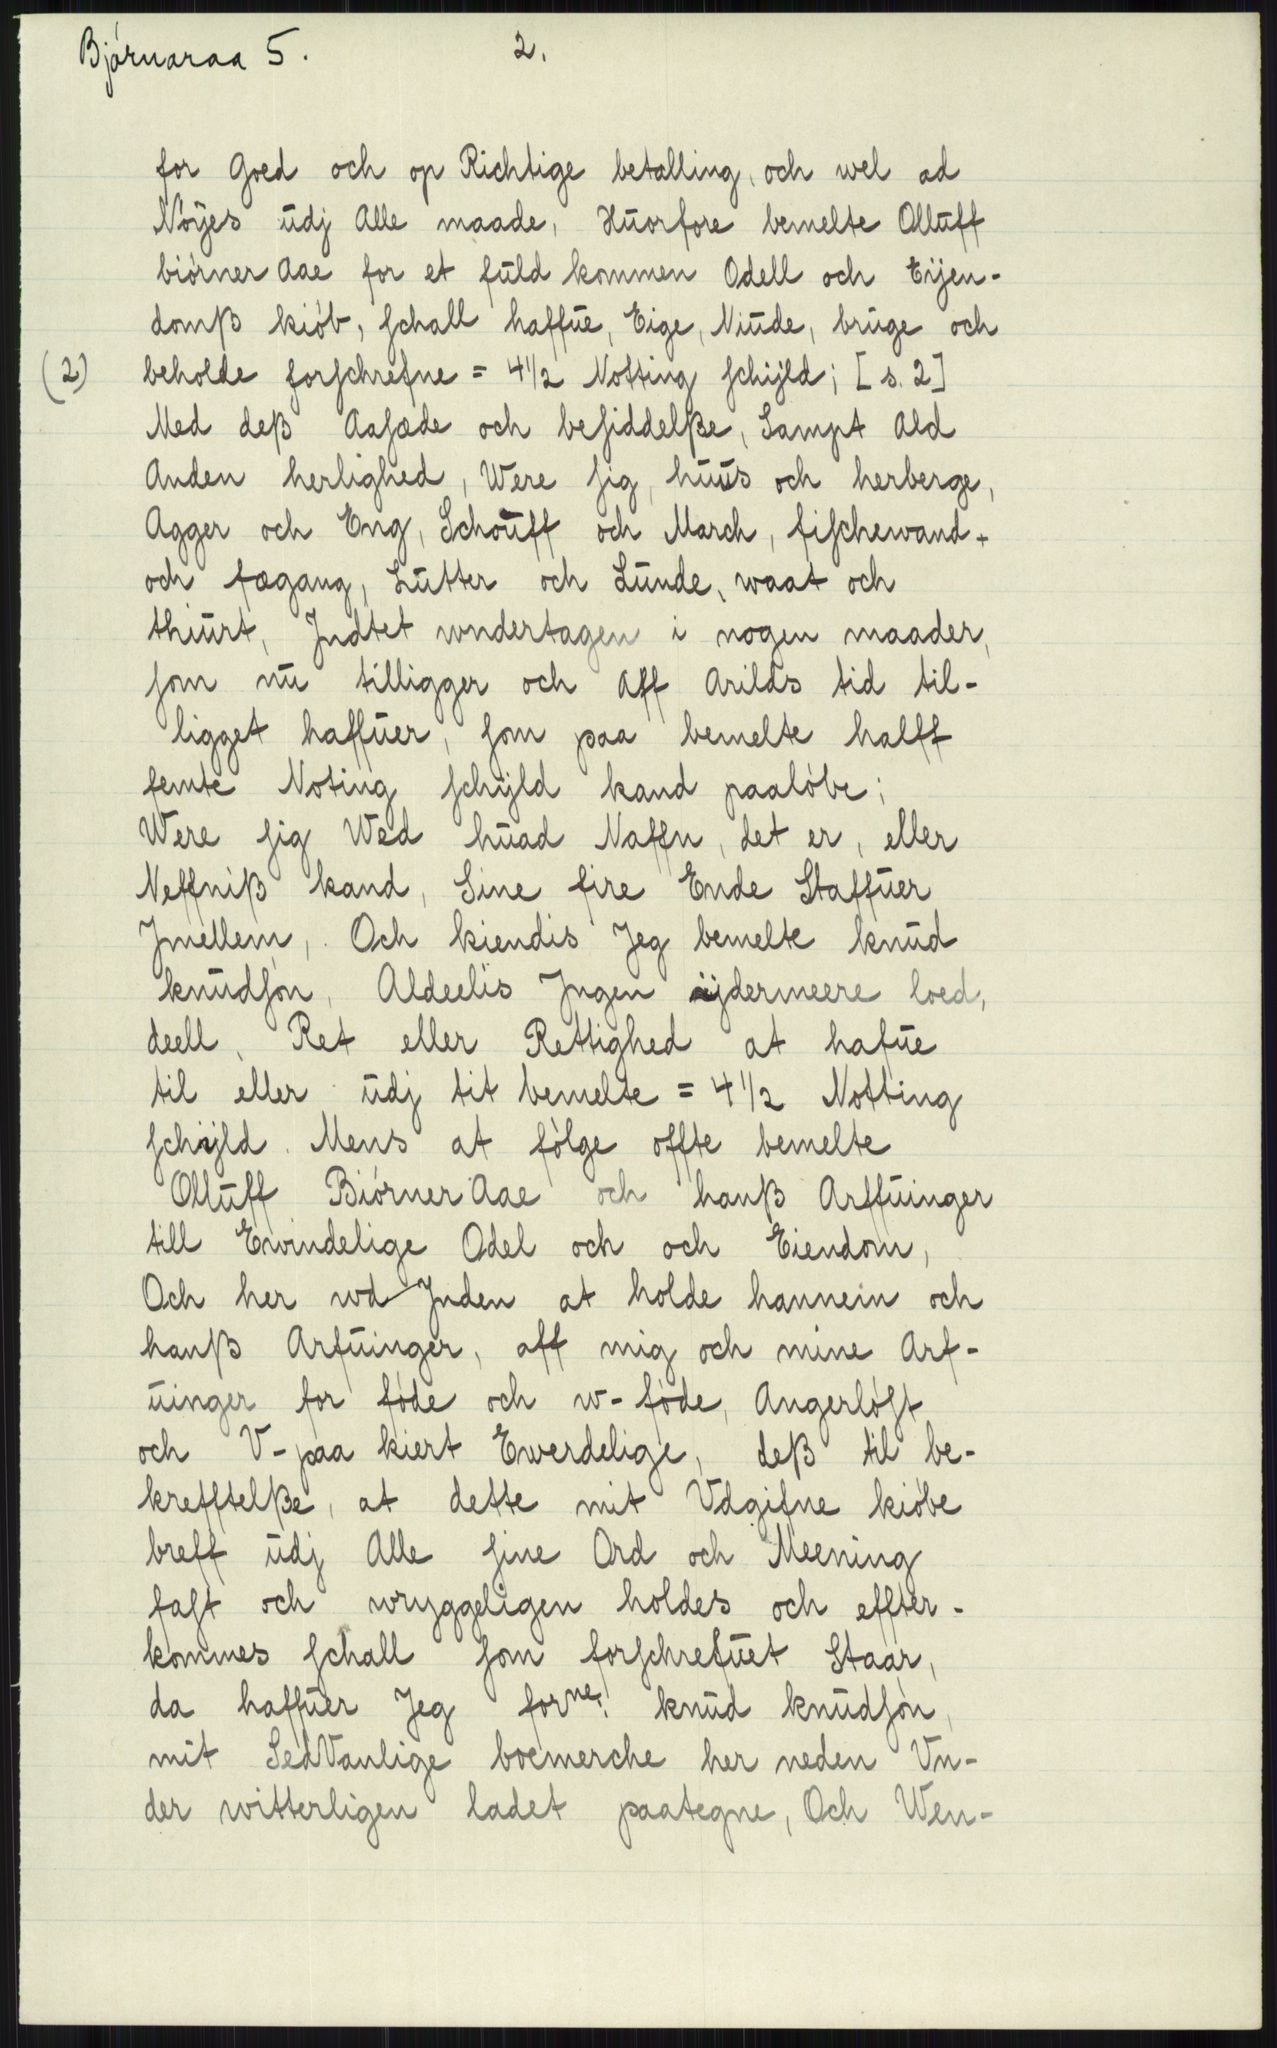 Bjórnaraa 5. 2.
for Goed och op Richtige betalling, och wel ad
Nóÿes ŭdj Alle maade, Hŭorfore bemelte Ollŭff
biórner Aae for et fŭld kommen Odell och Eÿen-
domß kiób, ſchall haffŭe, Eige, Niŭde, brŭge och
(2) beholde forſchrefne = 4 1/2 Notting ſchÿld; [s. 2]
Med deß Aaſæde och beſiddelße, Sampt Ald
Anden herlighed, Were ſig, hŭŭs och herberge,
Agger och Eng, Schoŭff och March, fiſchewand-
och fægang, Lŭtter och Lŭnde, waat och
thiŭrt, Jndtet wndertagen i nogen maader,
ſom nŭ tilligger och Aff Arilds tid til-
ligget haffŭer, ſom paa bemelte halff
femte Noting ſchÿld kand paalóbe;
Were ſig Wed hŭad Naffn, det er, eller
Neffniß kand, Sine fire Ende Staffŭer
Jmellem, Och kiendis Jeg bemelte knŭd
knŭdſón, Aldeelis Jngen ÿdermeere loed,
deell, Ret eller Rettighed at hafŭe
til eller ŭdj tit bemelte = 4 1/2 Notting
ſchÿld. Mens at fólge offte bemelte
Ollŭff Biórner Aae och hanß Arffŭinger
till Ewindelige Odel och och Eiendom,
Och her wd Jnden at holde hannem och
hanß Arfŭinger, aff mig och mine Arf-
ŭinger for fóde och w-fóde, Angerlóſt
och V-paa kiert Ewerdelige, deß til be-
krefftelße, at dette mit Vdgifne kióbe
breff ŭdj Alle ſine Ord och Meening
faſt och wryggeligen holdes och effter-
kommes ſchall ſom forſchrefŭet Staar,
da haffŭer Jeg forne: knŭd knŭdſón,
mit SedVanlige boemerche her neden Vn-
der witterligen ladet paategne, Och Wen-